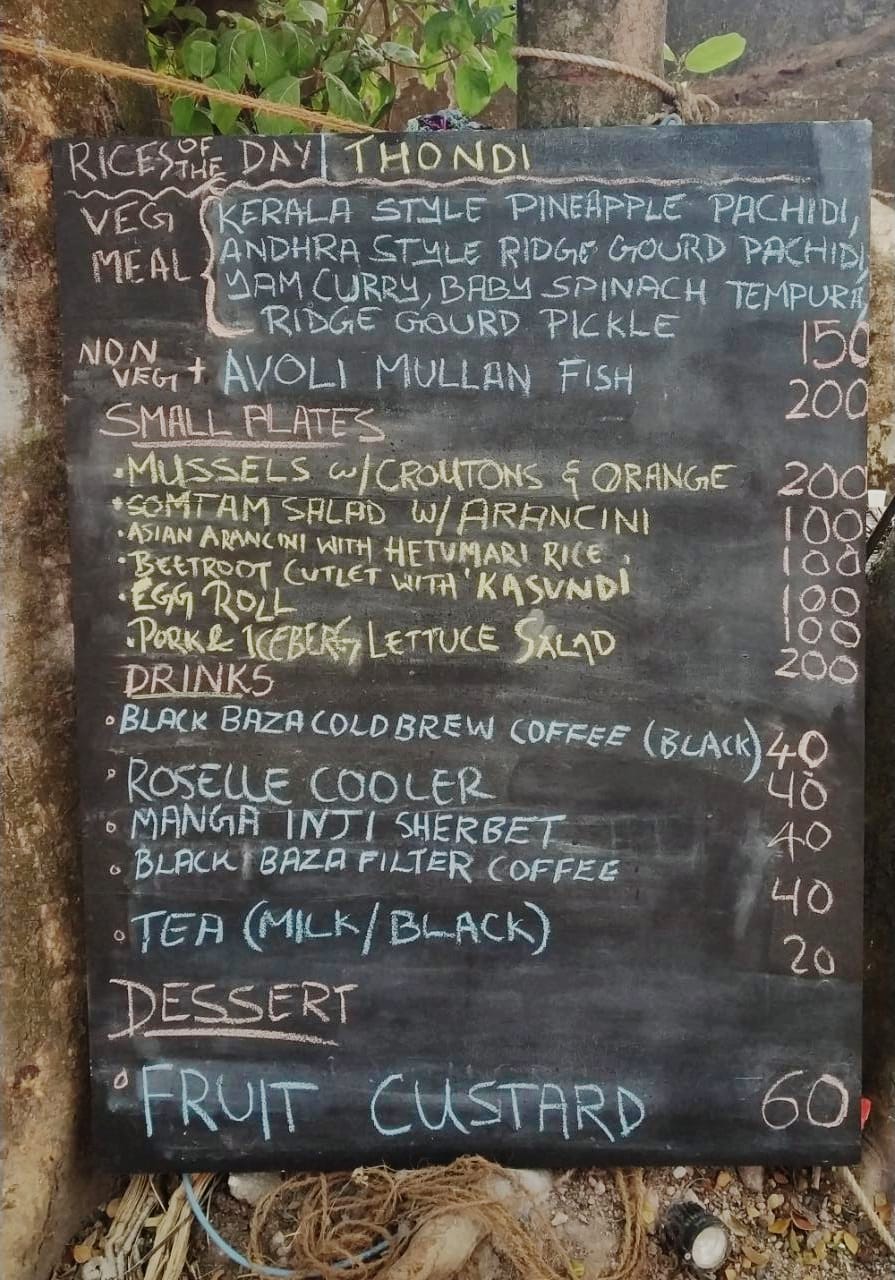 RICES OF THE DAY | THONDI
VEG MEAL { KERALA STYLE PINEAPPLE PACHIDI,
ANDHRA STYLE RIDGE GOURD PACHIDI,
YAM CURRY, BABY SPINACH TEMPURA,
RIDGE GOURD PICKLE 150
NON VEG + AVOLI MULLAN FISH 200
SMALL PLATES
• MUSSELS W/CROUTONS & ORANGE 200
• SOMTAM SALAD W/ARANCINI 100
• ASIAN ARANCINI WITH HETUMARI RICE. 100
• BEETROOT CUTLET WITH 'KASUNDI' 100
• EGG ROLL 100
• PORK & ICEBERG LETTUCE SALAD 200
DRINKS
• BLACK BAZA COLD BREW COFFEE (BLACK) 40
• ROSELLE COOLER 40
• MANGA INJI SHERBET 40
• BLACK BAZA FILTER COFFEE 40
• TEA (MILK/BLACK) 20
DESSERT
• FRUIT CUSTARD 60